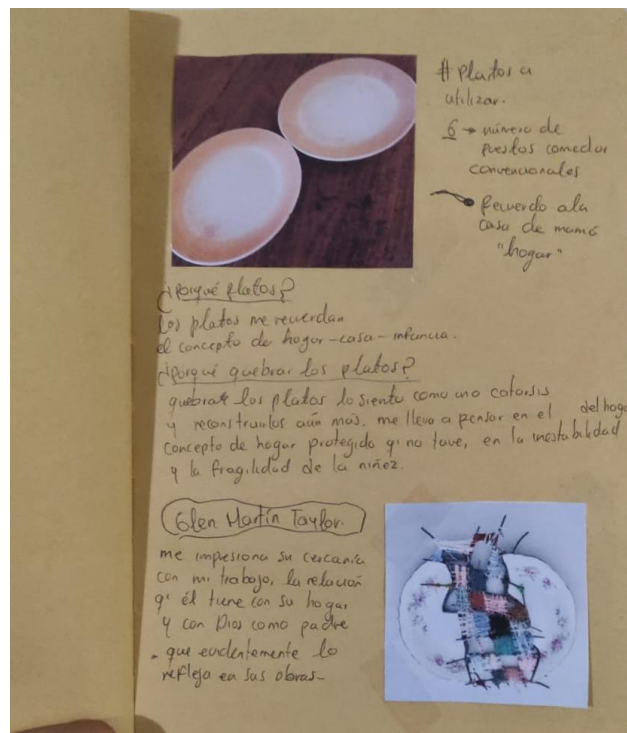 # platos a
utilizar.
6 → número de
puestos comedor
convencionales
Recuerdo a la
casa de mamá
"hogar"
¿Porqué platos?
los platos me recuerdan
el concepto de hogar-casa-infancia.
¿Porqué quebrar los platos?
quebrar los platos lo siento como una catarsis
y reconstruirlos aún más. me lleva a pensar en el
concepto de hogar protegido q' no tuve, en la inestabilidad del hogar
y la fragilidad de la niñez.
Glen Martin Taylor.
me impresiona su cercanía
con mi trabajo, la relación
q' él tiene con su hogar
y con Dios como padre
- que evidentemente lo
refleja en sus obras-